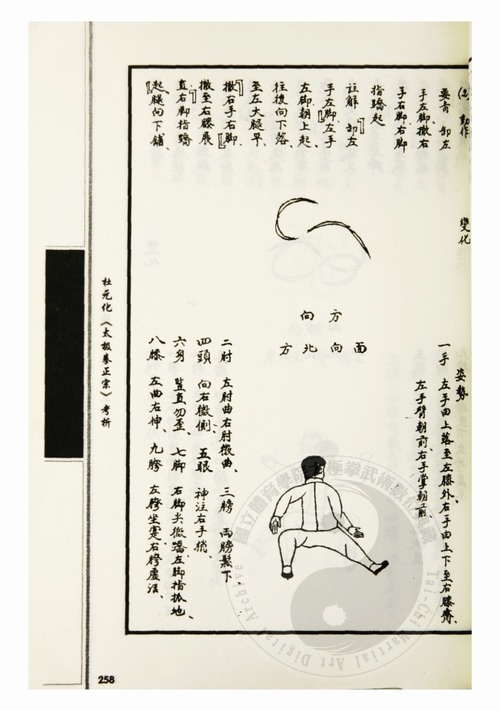 (2) 動作
變化
要言 卸左
手左脚撤右
手右脚右脚
指蹻起
註解 卸左
手左脚左手
左脚朝上起
往後向下落
至左大腿平
撤右手右脚
撤至右膝展
直右脚指蹻
起腿向下鋪
方
向
面向北方
姿勢
一手 左手由上落至左膝外右手由上下至右膝齊
左手臂朝前右手掌朝前
二肘 左肘曲右肘微曲、 三膀 両膀鬆下
四頭 向右微側、 五眼 神注右手稍、
六身 豎直勿歪、 七脚 右脚尖微蹻左脚指抓地、
八膝 左曲右伸、 九胯 左胯坐實右胯虛活、
杜元化《太极拳正宗》考析
258
Tai-Chi Martial Art Digital Archive